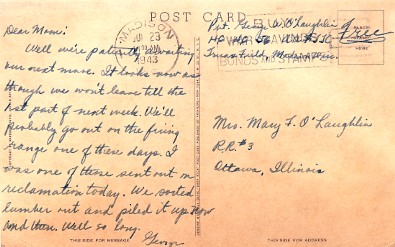 POST CARD
Dear Mom:
Well we're patiently waiting
our next move. It looks now as
though we won't leave till the
last part of next week. We'll
probably go out on the firing
range one of these days. I
was one of those sent out on
reclamation today. We sorted
lumber out and piled it up now
and then. Well so long.
George
THIS SIDE FOR MESSAGE
MADISON
JUN 23
1943
BUY
WAR SAVINGS
BONDS AND STAMPS
Pvt. George A. O'Laughlin
Truax Field, Madison, Wisc.
Free
PLACE
STAMP
HERE
Mrs. Mary F. O'Laughlin
R.R. #3
Ottawa, Illinois
THIS SIDE FOR ADDRESS